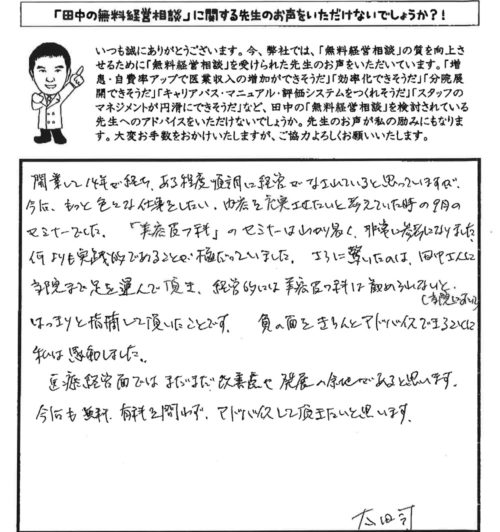 「田中の無料経営相談」に関する先生のお声をいただけないでしょうか?!
いつも誠にありがとうございます。今、弊社では、「無料経営相談」の質を向上さ
せるために「無料経営相談」を受けられた先生のお声をいただいています。「増
患・自費率アップで医業収入の増加ができそうだ」「効率化できそうだ」「分院展
開できそうだ」「キャリアパス・マニュアル・評価システムをつくれそうだ」「スタッフの
マネジメントが円滑にできそうだ」など、田中の「無料経営相談」を検討されている
先生へのアドバイスをいただけないでしょうか。先生のお声が私の励みにもなりま
す。大変お手数をおかけいたしますが、ご協力よろしくお願いいたします。
開業して14年が経ち、ある程度順調に経営がなされていると思っていますが、
今後、もっと色々な仕事をしたい、内容を充実させたいと考えていた時の9月の
セミナーでした。「美容皮フ科」のセミナーはわかり易く、非常に参考になりました。
何よりも実践的であることが極だっていました。さらに驚いたのは、田中さんに
当院まで足を運んで頂き、経営的には美容皮フ科は勧められないと、
(当院においては)
はっきりと指摘して頂いたことです。負の面をきちんとアドバイスできることに
私は感動しました。
医療経営面ではまだまだ改善点や発展の余地があると思います。
今後も無料、有料を問わず、アドバイスして頂きたいと思います。
太田